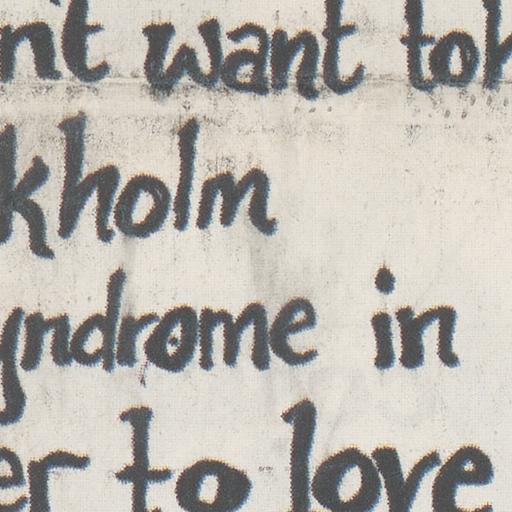 n't want to h
kholm
yndrome in
er to love